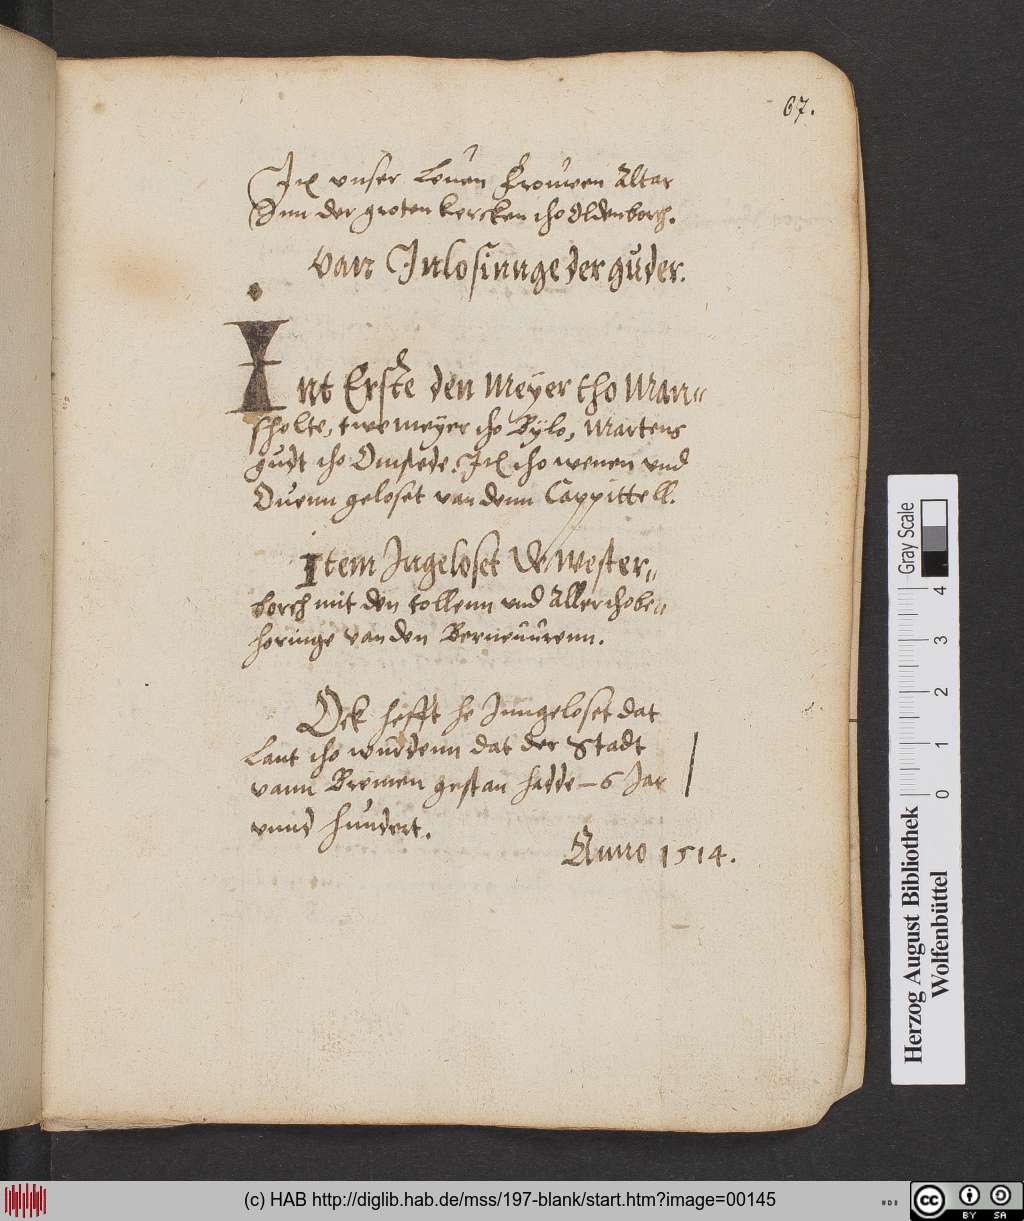 67.
Jtl vnser Leuen Frouwen Altar
Jnn der groten kercken tho Oldenborch.
van Jnlosinnge der guder.
Int Erste den Meyer tho Man„
sholte, twe meyer tho Bylo, Martens
gudt tho Omstede. Jtl tho wenen vnd
Ouenn geloset van denn Cappittell.
Item Jngeloset De Wester„
borch mit den tollenn vnd Aller thobe„
horinge van den Berneuurenn.
Ock hefft he Jnngeloset dat
Lant tho wurdenn dat der Stadt
vann Bremen gestan hadde – 6 Jar
vnnd hundert.
Anno 1514.
Gray Scale
0 1 2 3 4
Herzog August Bibliothek
Wolfenbüttel
(c) HAB http://diglib.hab.de/mss/197-blank/start.htm?image=00145
cc BY SA